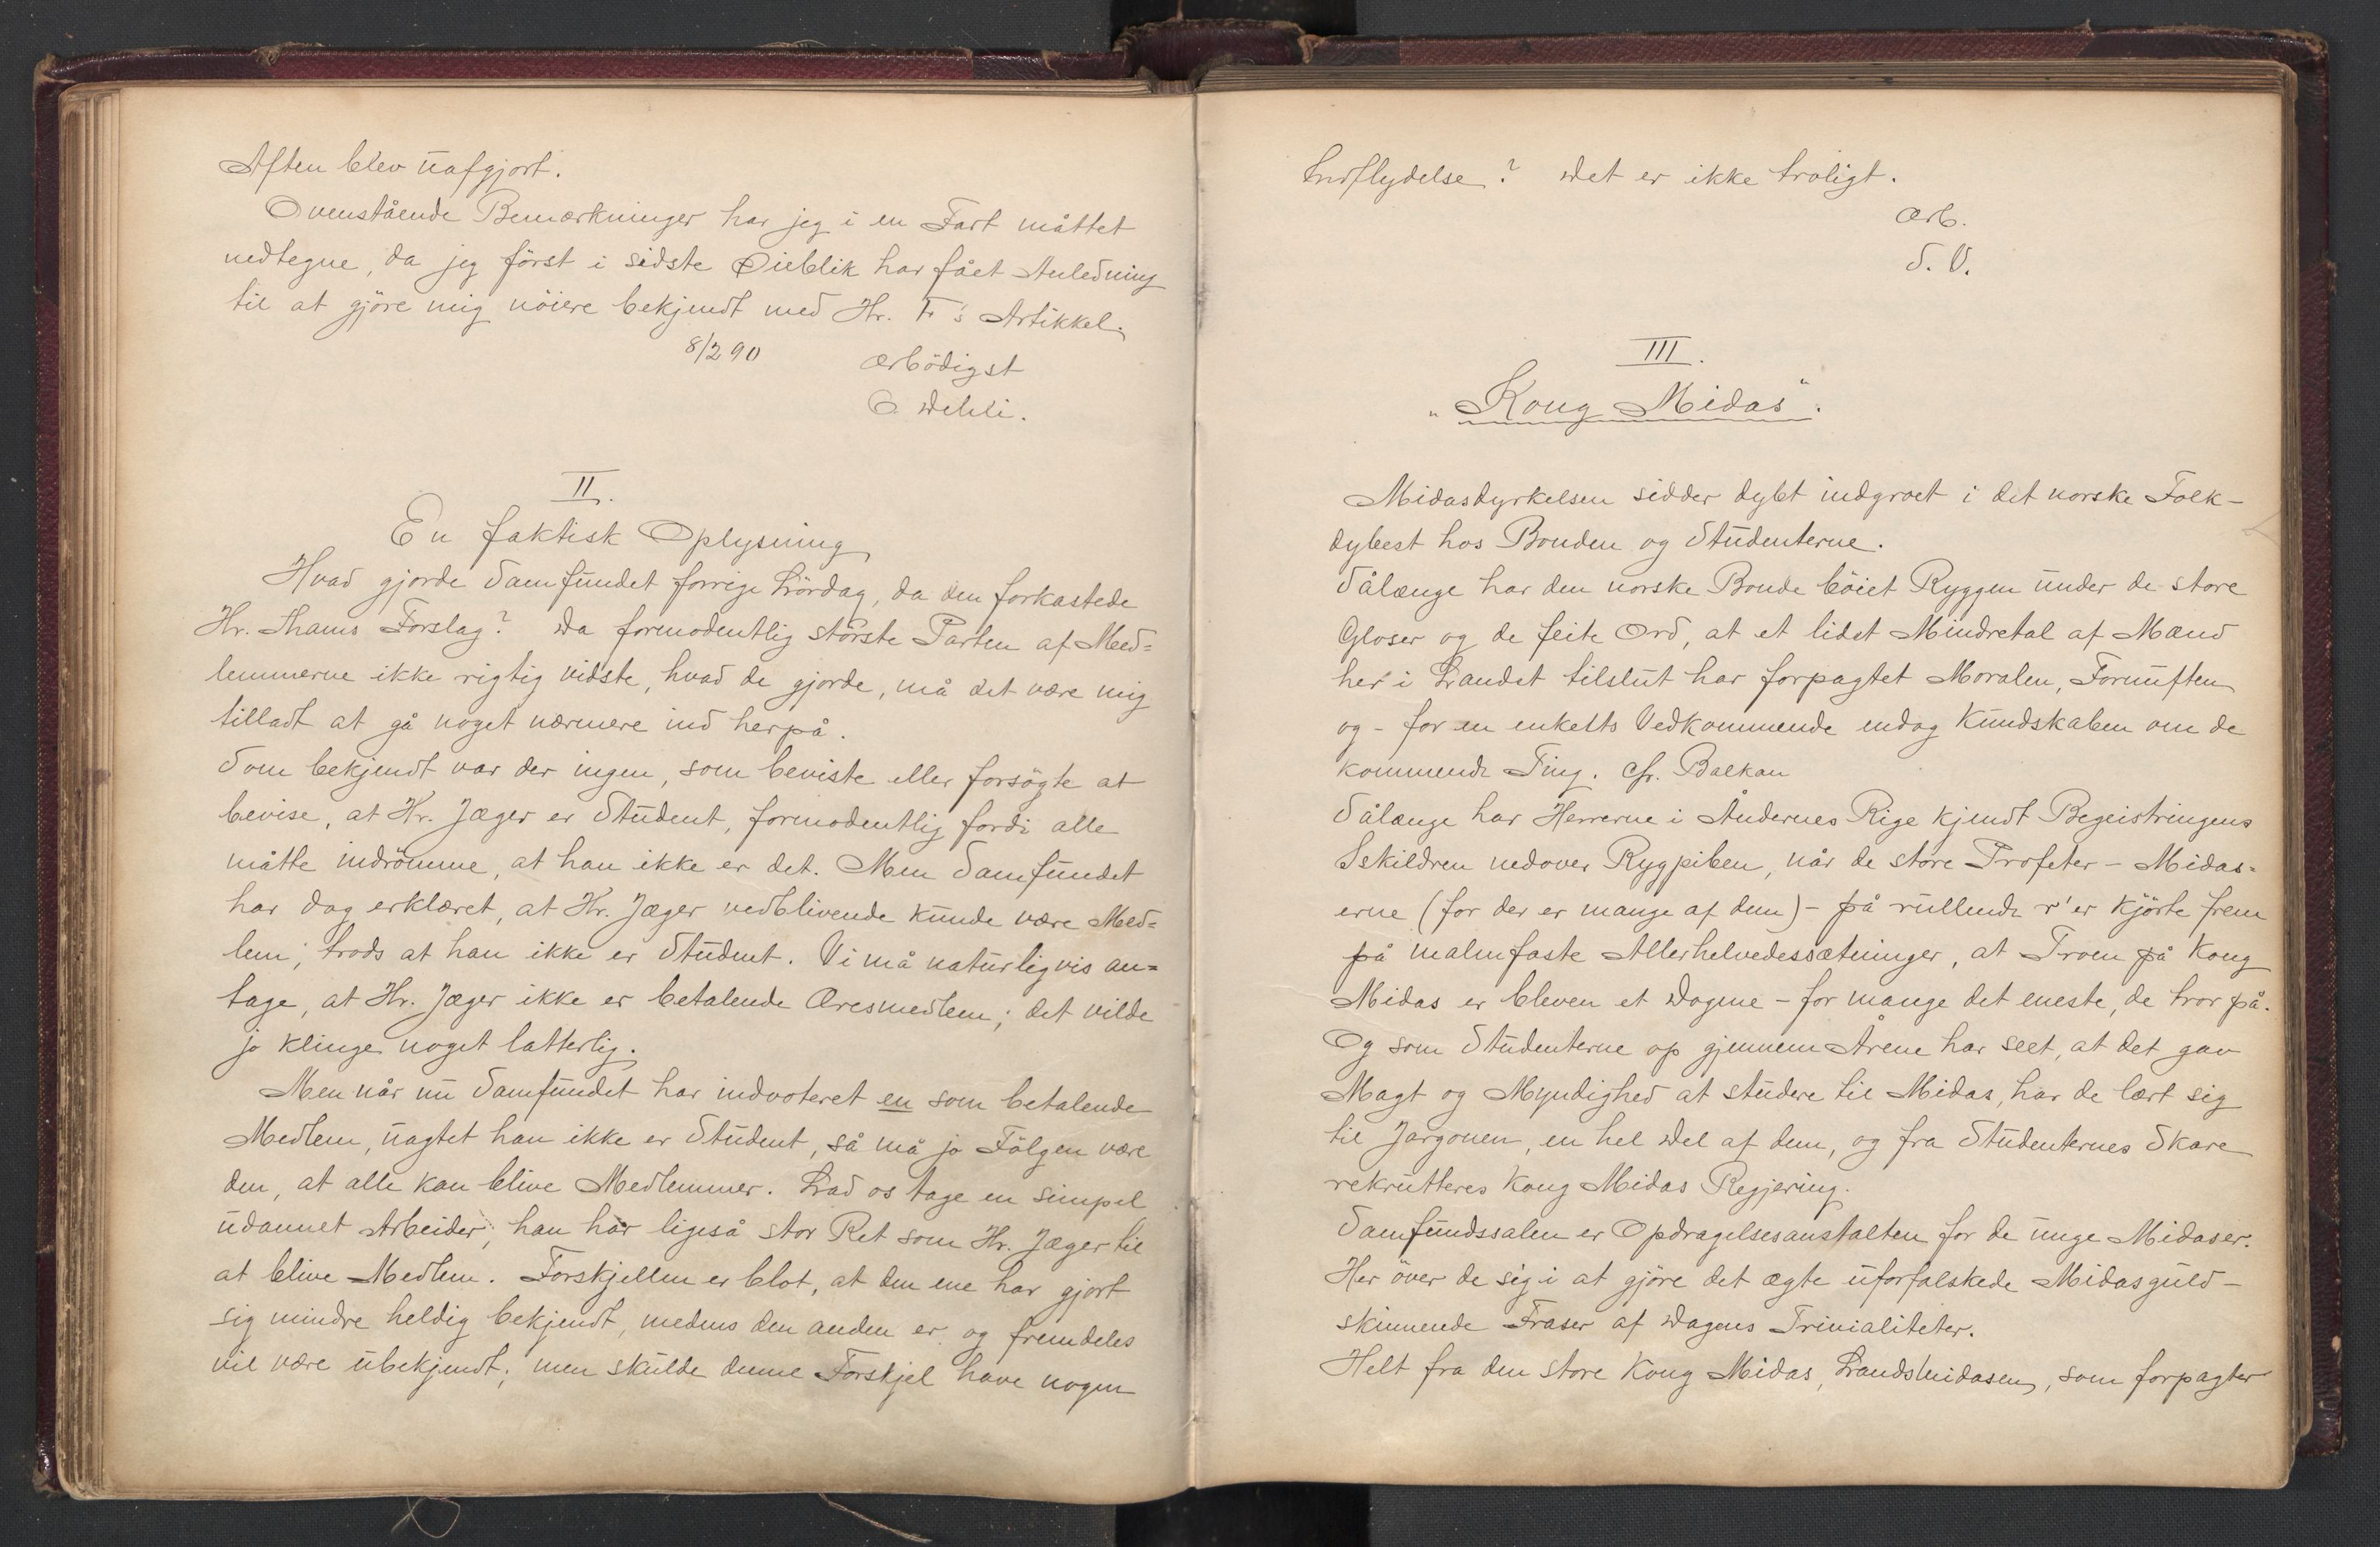 Aften blev uafgjort.
Ovenstående Bemærkninger har jeg i en Fart måttet
nedtegne, da jeg först i sidste Øieblik har fået Anledning
til at gjöre mig nöiere bekjendt med Hr. F's Artikkel.
8/2 90 Ærbödigst
O Dehli.
II.
En faktisk Oplysning
Hvad gjorde Samfundet forrige Lördag, da den forkastede
Hr. Thams Forslag? Da formodentlig störste Parten af Med=
lemmerne ikke rigtig vidste, hvad de gjorde, må det være mig
tilladt at gå noget nærmere ind herpå.
Som bekjendt var der ingen, som beviste eller forsögte at
bevise, at Hr. Jæger er Student, formodentlig fordi alle
måtte indrömme, at han ikke er det. Men Samfundet
har dog erklæret, at Hr. Jæger vedblivende kunde være Med=
lem, trods at han ikke er Student. Vi må naturligvis an=
tage, at Hr. Jæger ikke er betalende Æresmedlem; det vilde
jo klinge noget latterlig.
Men når nu Samfundet har indvoteret en som betalende
Medlem, uagtet han ikke er Student, så må jo Fölgen være
den, at alle kan blive Medlemmer. Lad os tage en simpel
udannet Arbeider, han har ligeså stor Ret som Hr. Jæger til
at blive Medlem. Forskjellen er blot, at den ene har gjort
sig mindre heldig bekjendt, medens den anden er og fremdeles
vil være ubekjendt; men skulde denne Forskjel have nogen
Indflydelse? Det er ikke troligt.
Ærb.
S. V.
III.
"Kong Midas".
Midasdyrkelsen sidder dybt indgroet i det norske Folk -
dybest hos Bonden og Studenterne.
Sålænge har den norske Bonde böiet Ryggen under de store
Gloser og de feite Ord, at et lidet Mindretal af Mænd
her i Landet tilslut har forpagtet Moralen, Fornuften
og - for en enkelts Vedkommende endog Kundskaben om de
kommende Ting. cfr. Balkan
Sålænge har Herrerne i Åndernes Rige kjendt Begeistringens
Iskildren nedover Rygpiben, når de store Profeter - Midas=
erne (for der er mange af dem) - på rullende r'er kjörte frem
på malmfaste Allerhelvedessætninger, at Troen på Kong
Midas er bleven et Dogme - for mange det eneste, de tror på.
Og som Studenterne op gjennem Årene har seet, at det gav
Magt og Myndighed at studere til Midas, har de lært sig
til Jargonen, en hel Del af dem, og fra Studenternes Skare
rekrutteres Kong Midas Regjering.
Samfundssalen er Opdragelsesanstalten for de unge Midaser.
Her över de sig i at gjöre det ægte uforfalskede Midasguld -
skinnende Fraser af Dagens Trivialiteter.
Helt fra den store Kong Midas, Landsmidasen, som forpagter